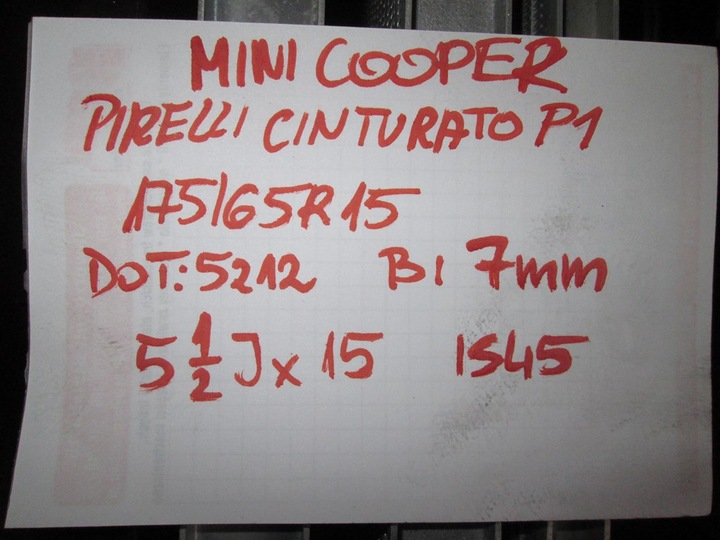 MINI COOPER
PIRELLI CINTURATO P1
175/65R15
DOT:5212 BI 7mm
5 1/2 J x 15 IS45